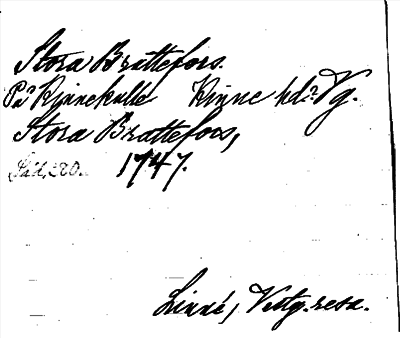 Stora Brattefors.
På Kinnekulle Kinne hd. Vg.
Stora Brattefors,
1747.
Linné, Vestg. resa.